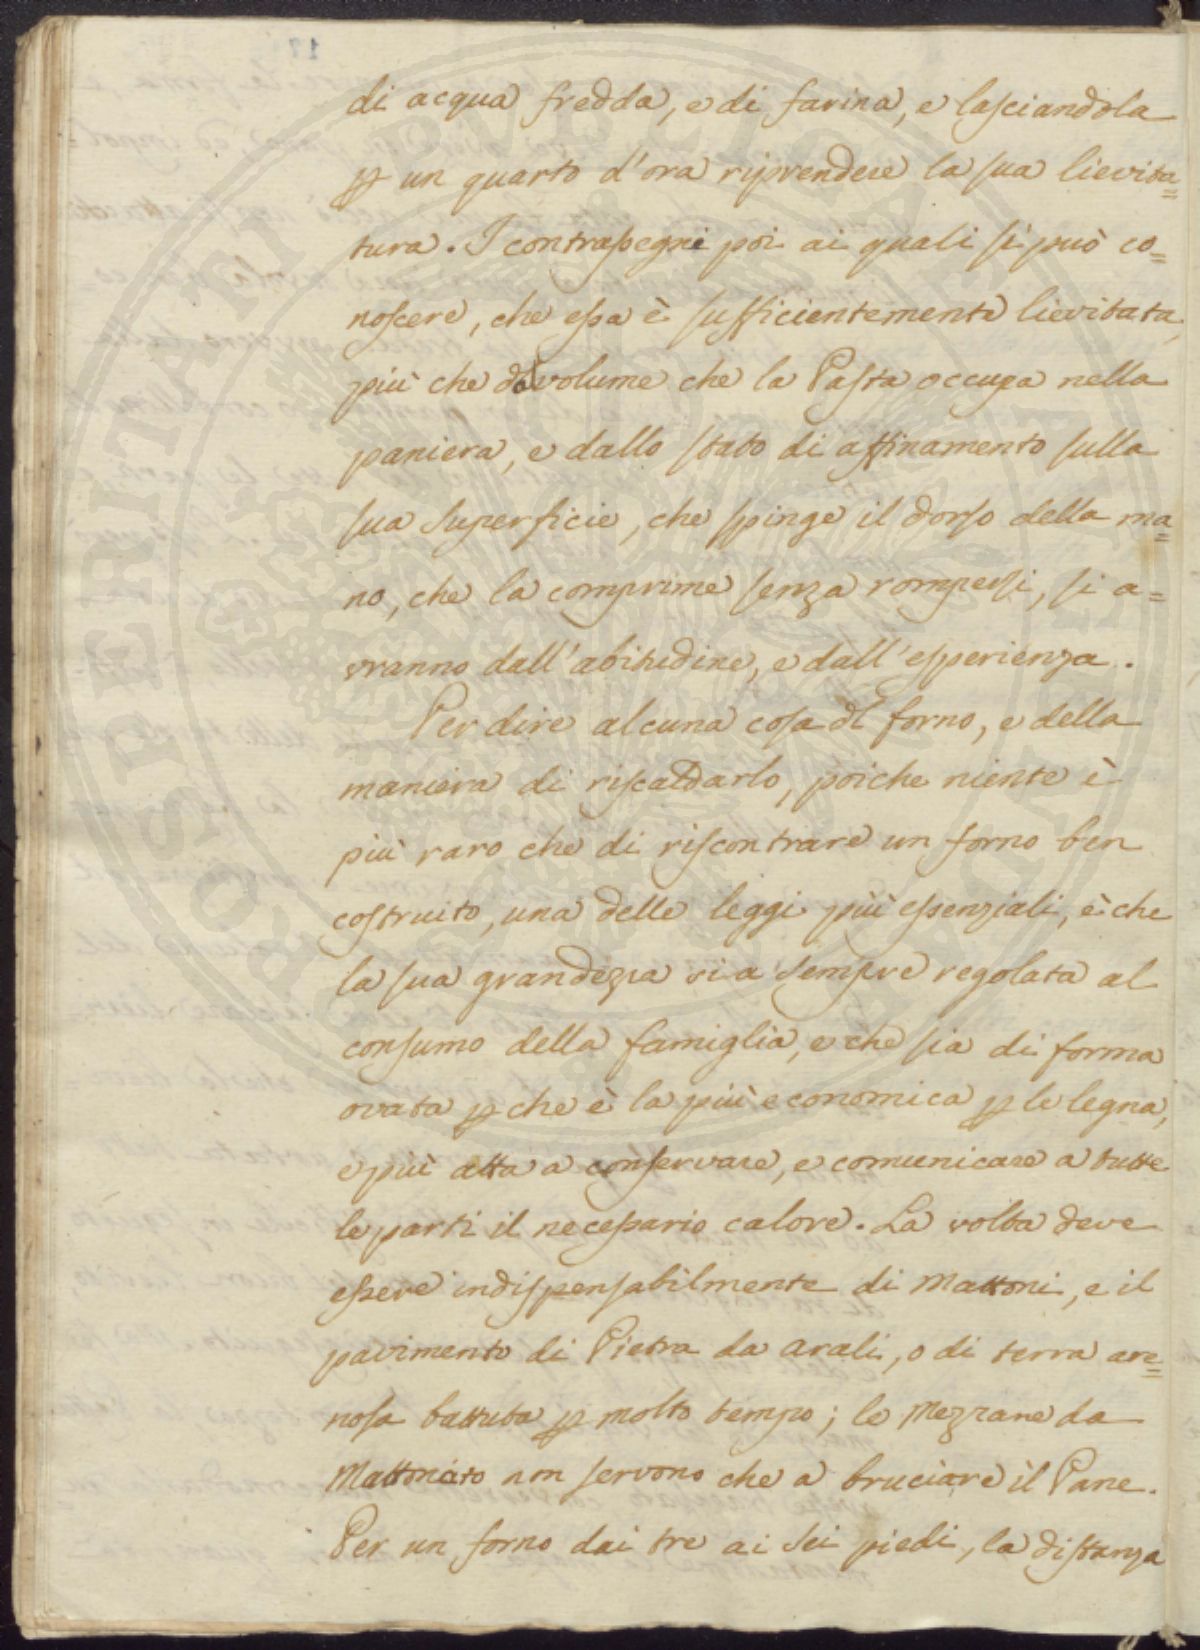 di acqua fredda, e di farina, e lasciandola
p un quarto d'ora riprendere la sua lievita=
tura. I contrassegni poi ai quali si può co=
noscere, che essa è sufficientemente lievitata,
più che dal volume che la Pasta occupa nella
paniera, e dallo stato di affinamento sulla
sua superficie, che spinge il dorso della ma=
no, che la comprime senza rompersi, si a=
vranno dall'abitudine, e dall'esperienza.
Per dire alcuna cosa dl forno, e della
maniera di riscaldarlo, poiche niente è
più raro che di riscontrare un forno ben
costruito, una delle leggi più essenziali, è che
la sua grandezza sia sempre regolata al
consumo della famiglia, e che sia di forma
ovata p che è la più economica p le legna,
e più atta a conservare, e comunicare a tutte
le parti il necessario calore. La volta deve
essere indispensabilmente di Mattoni, e il
pavimento di Pietra da arali, o di terra are=
nosa battuta p molto tempo; le Mezzane da
Mattonato non servono che a bruciare il Pane.
Per un forno dai tre ai sei piedi, la distanza
PROSPERITATI PVBLICAE AVGENDAE